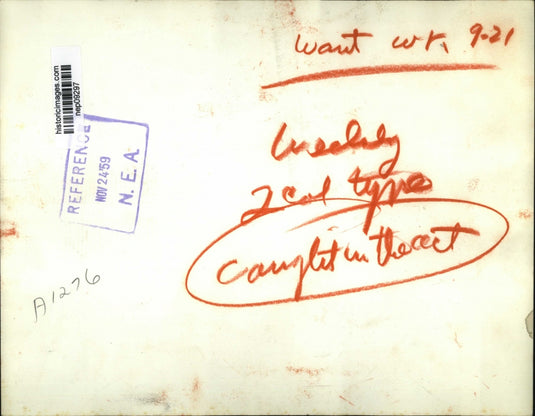 want wr. 9-21
Weekly
2 col type
Caught in the act
historicimages.com
nep09297
REFERENCE
NOV 24 '59
N. E. A.
A1276